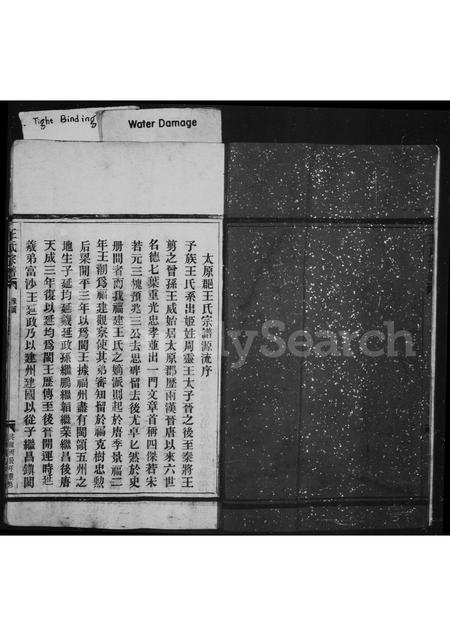 Tight Binding
Water Damage
太原郡王氏宗譜源流序
子族王氏系出姬姓周靈王太子晉之後至秦將王
翦之晉孫王威始居太原郡歷兩漢晉唐以來六世
名德七葉重光忠孝並出一門文章首稱四傑若宋
若元三槐預兆三公去思碑留去後尤卓匕然於史
冊間者而我福建王氏之嫡派則起於唐季景福二
年王潮為福建觀察使其弟審知留於福克樹忠勲
后梁開平三年以為閩王據福州盡有閩領五州之
地生子延均延羲延政孫繼鵬繼韜繼業繼昌後唐
天成三年復以延均為閩王歷傳至後晉開運時延
羲弟富沙王延政乃以建州建國以從子繼昌鎮閩
王氏宗譜
ySearch